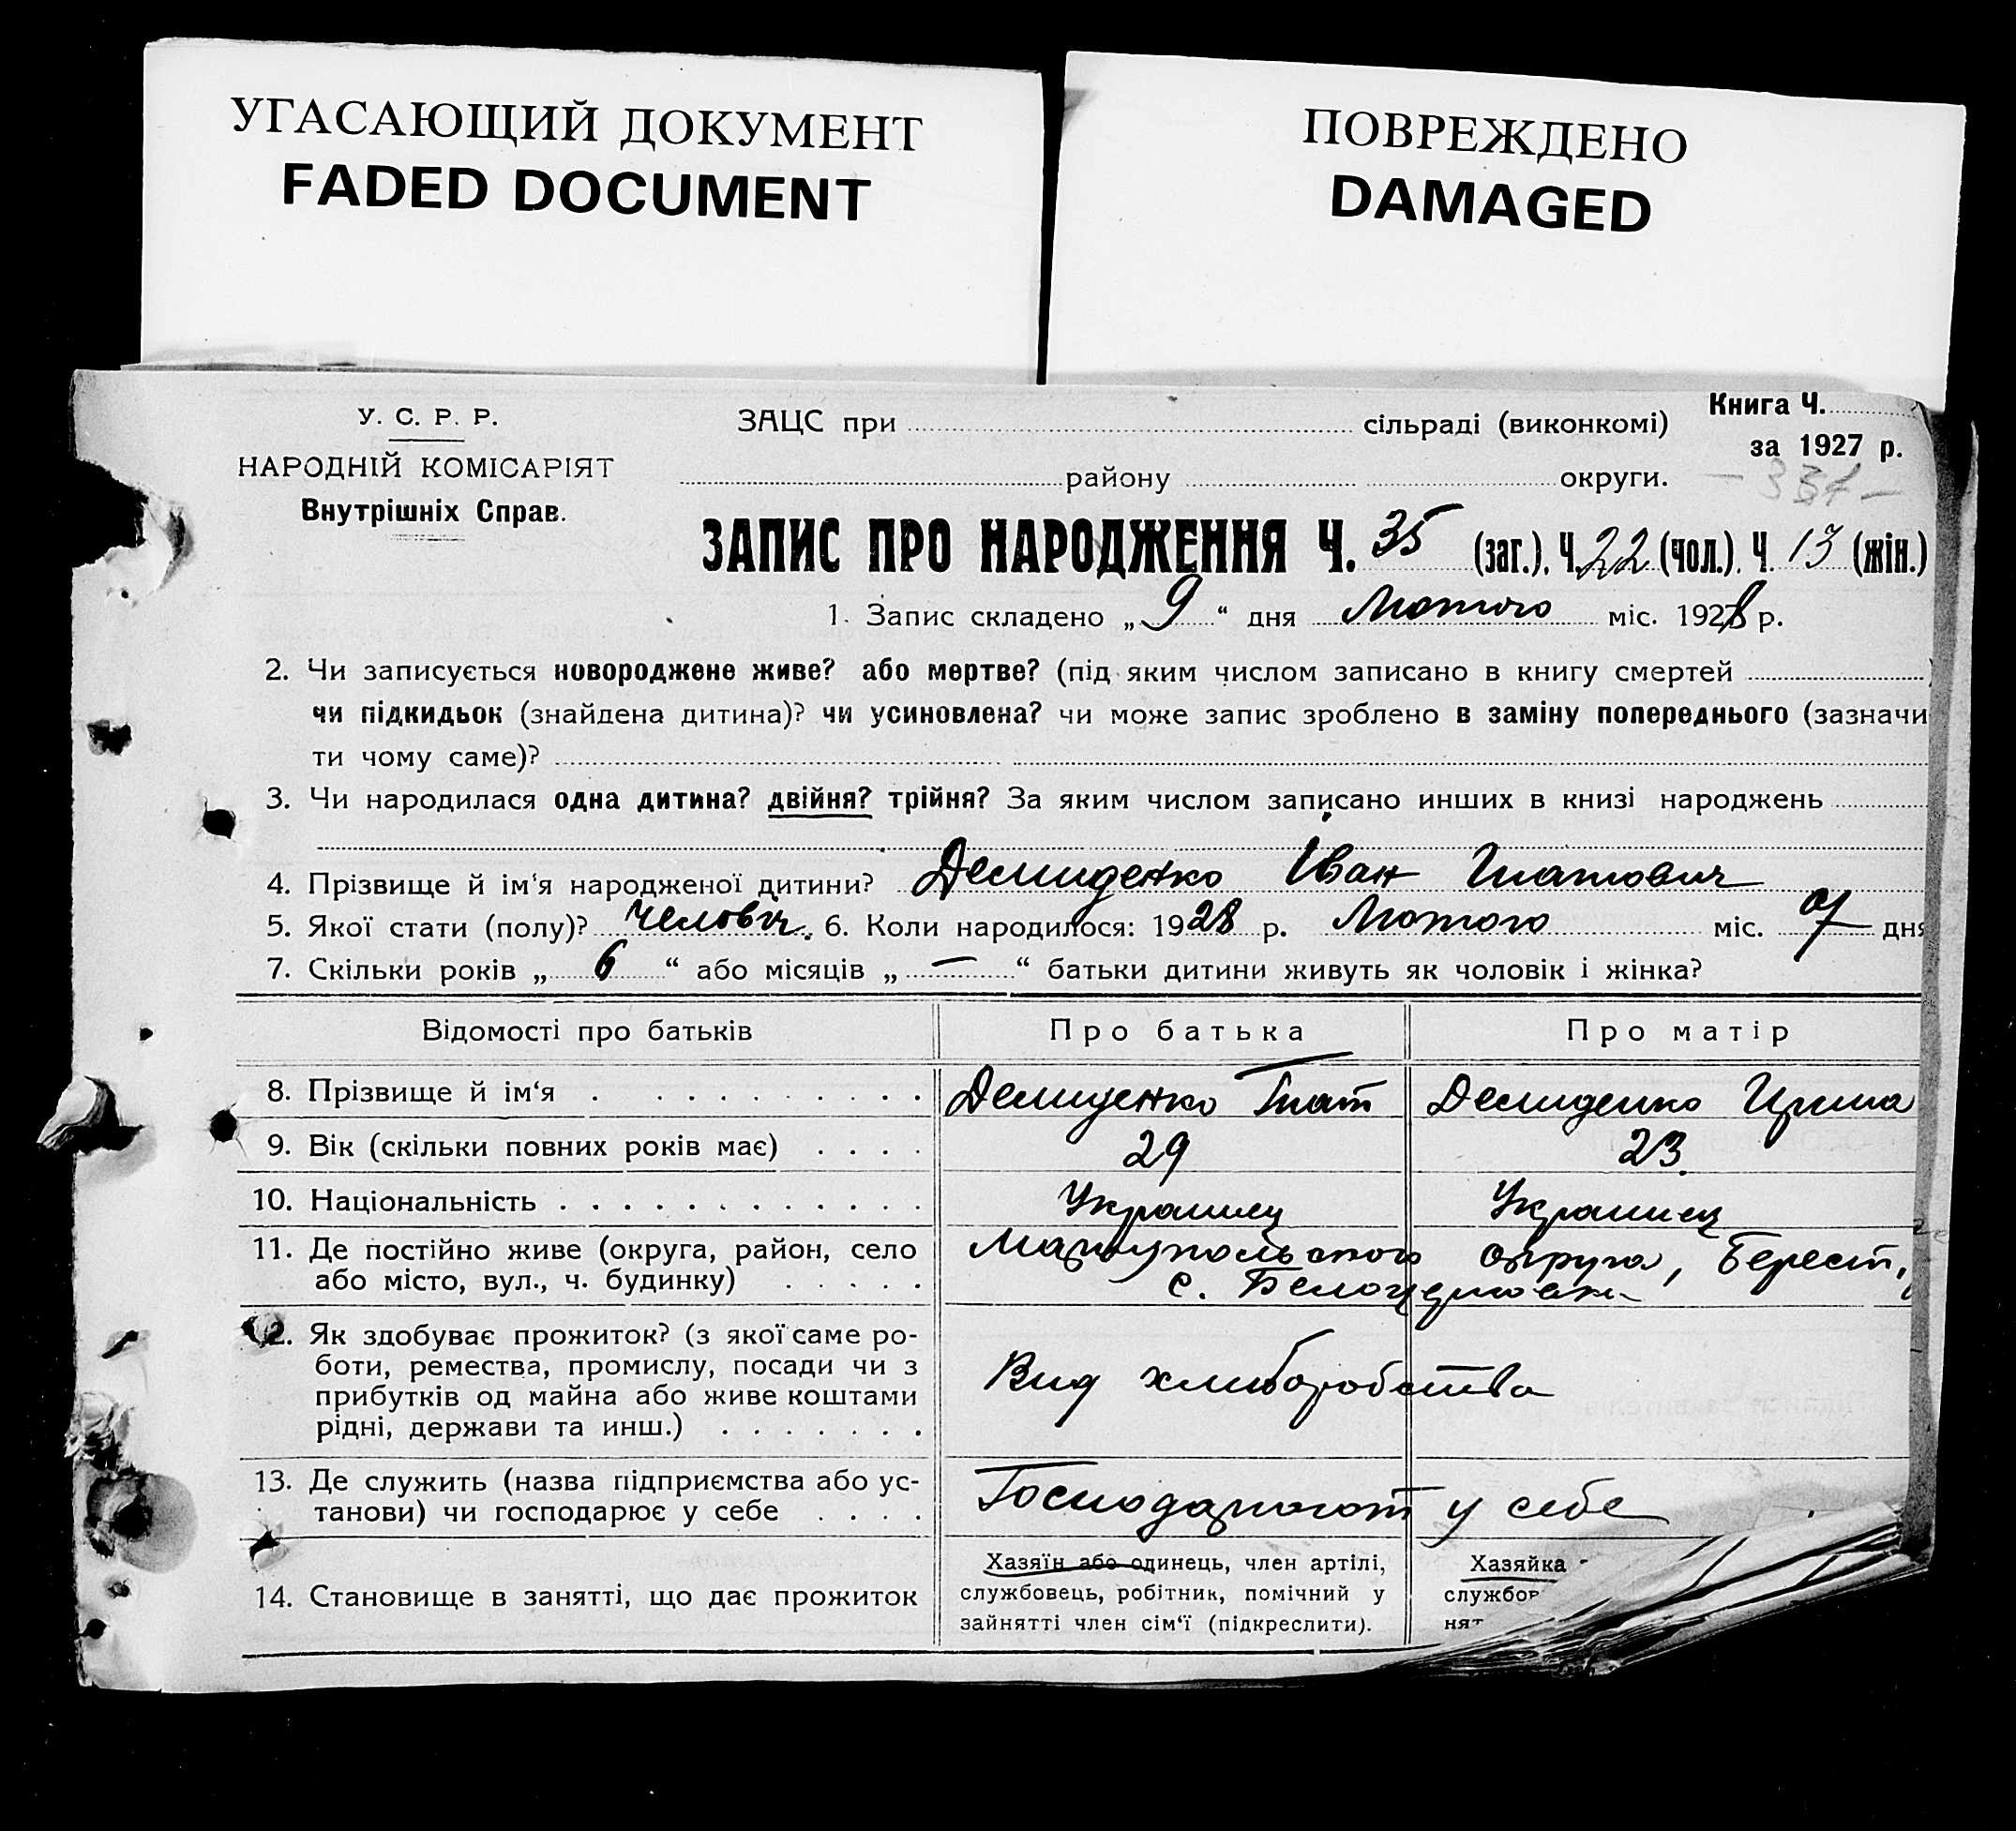 УГАСАЮЩИЙ ДОКУМЕНТ
FADED DOCUMENT
ПОВРЕЖДЕНО
DAMAGED
У. С. Р. Р.
НАРОДНІЙ КОМІСАРІЯТ
Внутрішніх Справ.
ЗАЦС при сільраді (виконкомі)
району округи.
Книга Ч.
за 1927 р.
ЗАПИС ПРО НАРОДЖЕННЯ Ч. 35 (заг.), Ч. 22 (чол.), Ч. 13 (жін.)
1. Запис складено „ 9 “ дня Лютого міс. 1928 р.
2. Чи записується новороджене живе? або мертве? (під яким числом записано в книгу смертей )
чи підкидьок (знайдена дитина)? чи усиновлена? чи може запис зроблено в заміну попереднього (зазначи
ти чому саме)?
3. Чи народилася одна дитина? двійня? трійня? За яким числом записано инших в книзі народжень
4. Прізвище й ім'я народженої дитини? Демиденко Іван Гнатович
5. Якої стати (полу)? 6. Коли народилося: 1928 р. Лютого міс. 7 дня
7. Скільки років „ 6 “ або місяців „ — “ батьки дитини живуть як чоловік і жінка?
Відомості про батьків Про батька Про матір
8. Прізвище й ім‘я Демиденко Гнат Демиденко Ирина
9. Вік (скільки повних років має) 29 23.
10. Національність Украинец Украинец
11. Де постійно живе (округа, район, село Мариупольского округа, Берест.
або місто, вул., ч. будинку) с.
12. Як здобуває прожиток? (з якої саме ро-
боти, ремества, промислу, посади чи з
прибутків од майна або живе коштами
рідні, держави та инш.)
Вид хлиборобства
13. Де служить (назва підприємства або ус-
танови) чи господарює у себе
Господарюют у себе
14. Становище в занятті, що дає прожиток
Хазяїн або одинець, член артілі,
службовець, робітник, помічний у
зайнятті член сім‘ї (підкреслити).
Хазяйка